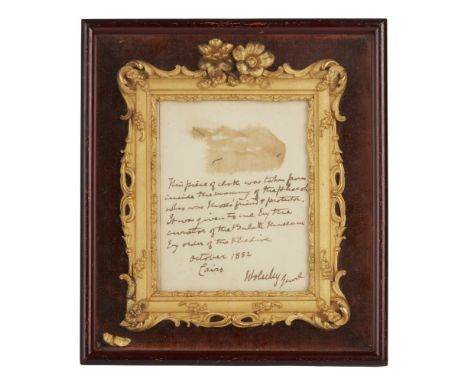 This piece of cloth was taken from
inside the mummy of the Pharaoh
who was Moses' friend & protector.
It was given to me by the
curator of the Bulak Museum
by order of the Khedive
October 1882
Cairo
Wolseley